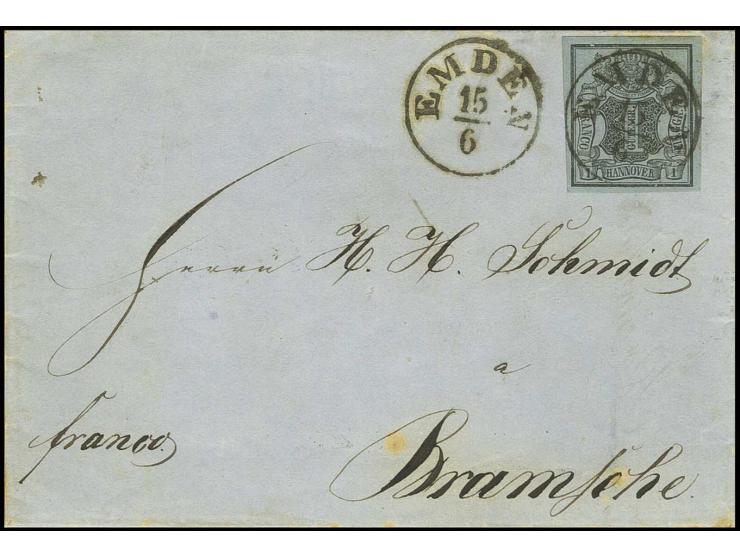 EMDEN
15
6
EMDEN
FRANCO
1 HANNOVER 1
Herrn H. H. Schmidt
a
franco.
Bramſche.